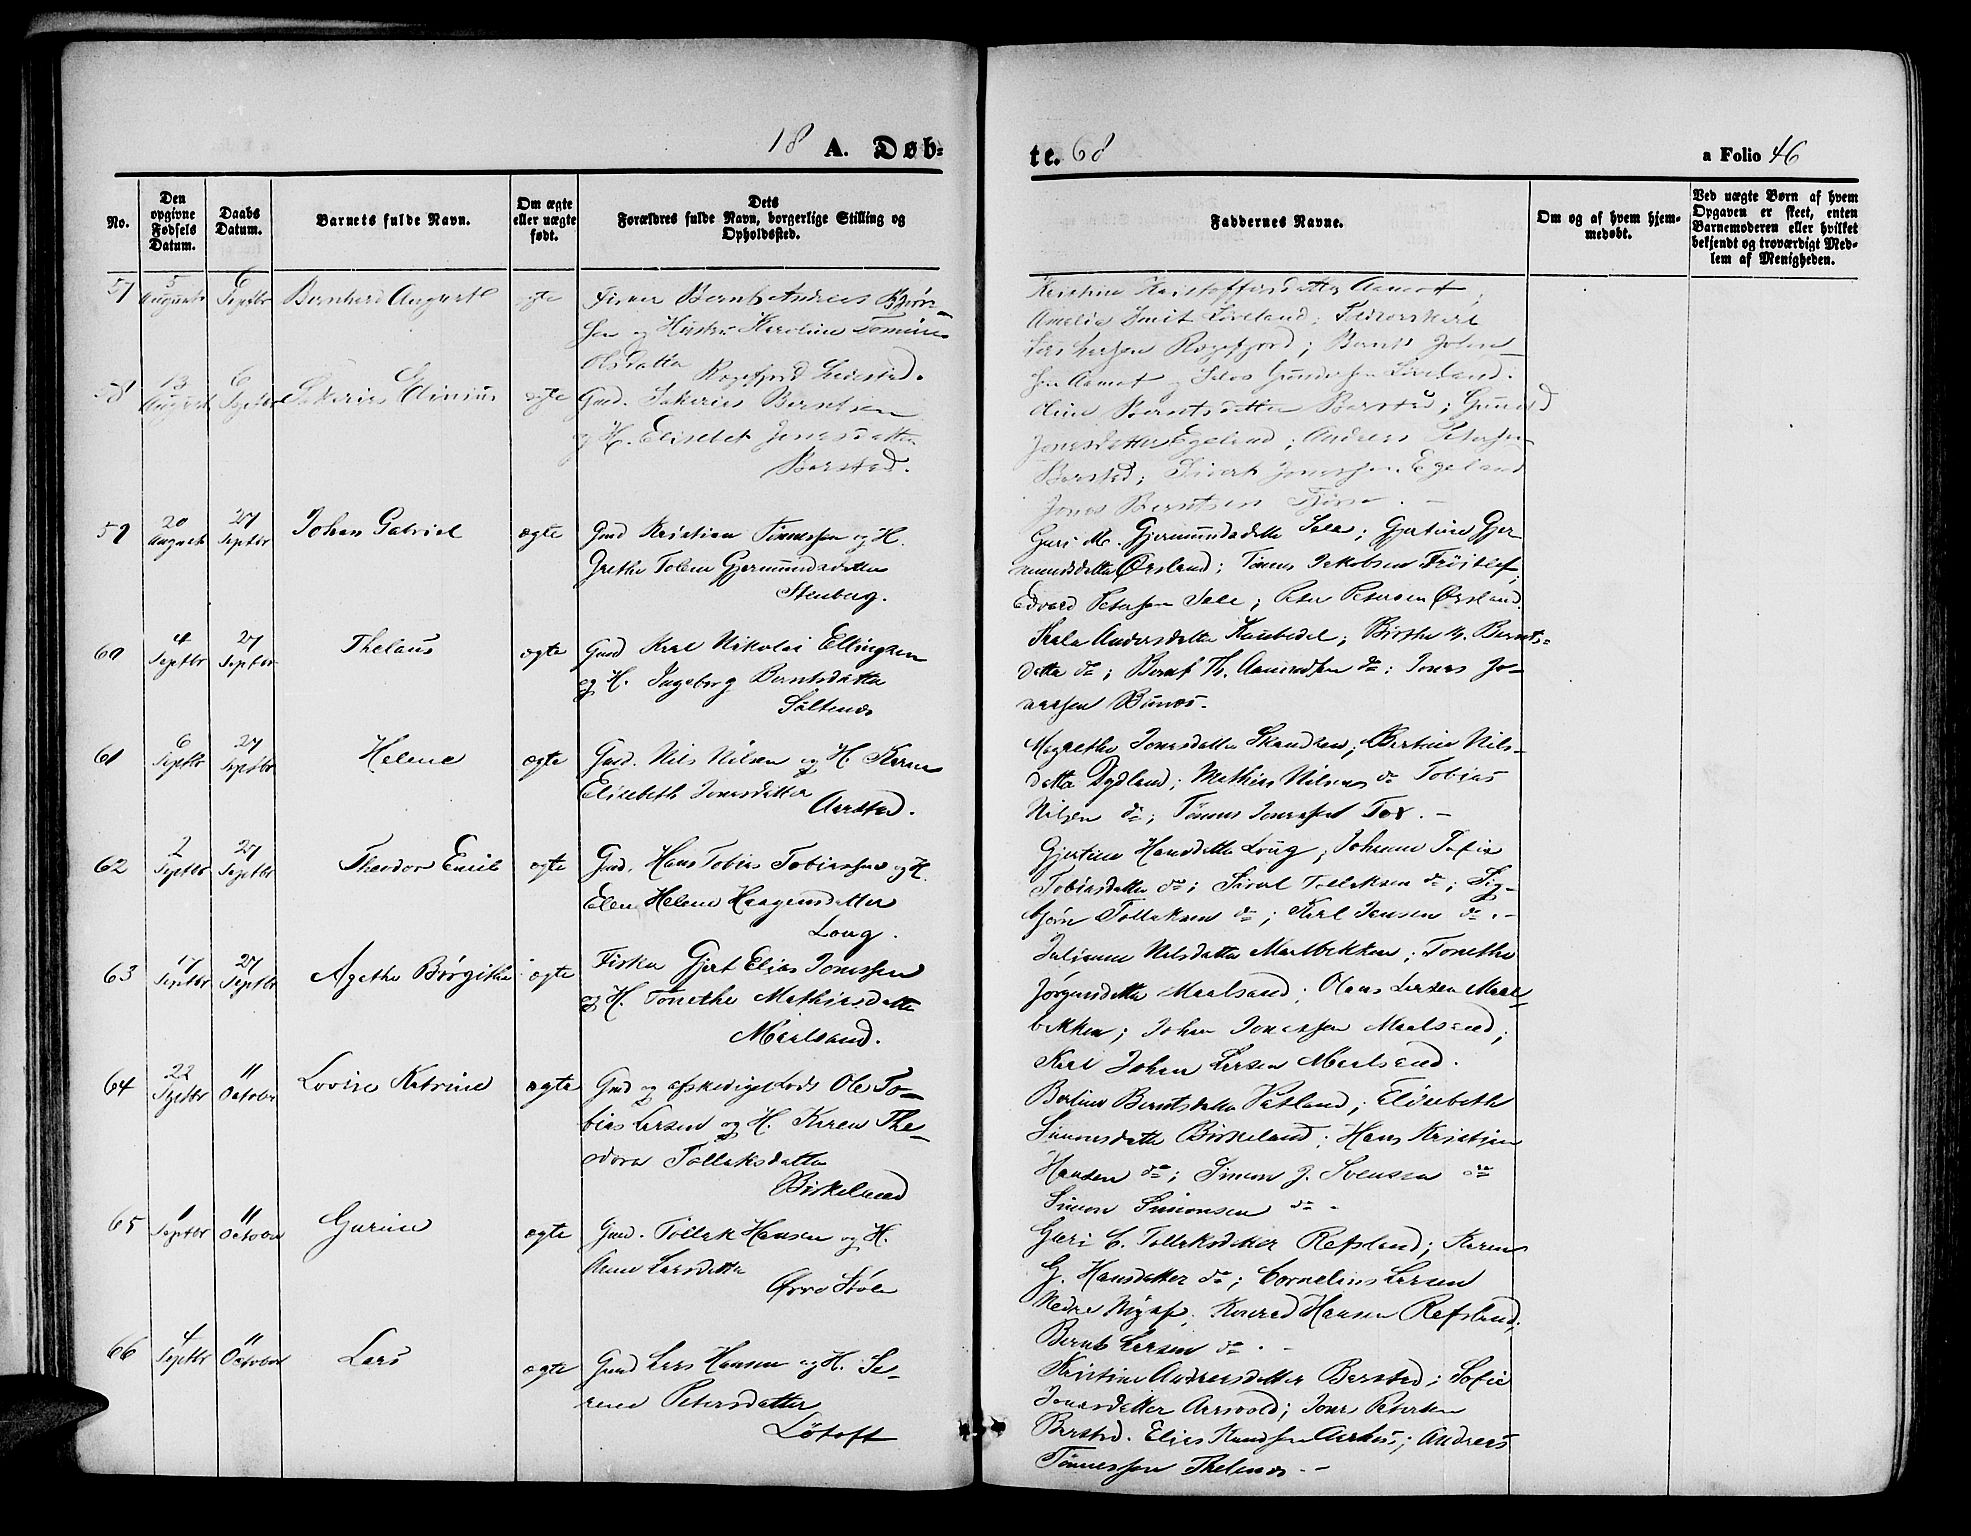 18 A. Døb-
te. 68
a Folio 46
No.
Den opgivne Fødsels Datum.
Daabs Datum.
Barnets fulde Navn.
Om ægte eller uægte født.
Dets Forældres fulde Navn, borgerlige Stilling og Opholdssted.
Faddernes Navne.
Om og af hvem hjemmedøbt.
Ved uægte Børn af hvem Opgaven er skeet, enten Barnemoderen eller hvilket bekjendt og troværdigt Medlem af Menigheden.
57 5 August 6 Septbr Bernhard August ægte
Fisker Bernt Andreas Bjørn-
sen og Hustru Karoline Tomine
Olsdatter Rægefjord
Kristine Kristoffersdatter Aamot;
Amalia Smit Løveland;
Lars Larsen Rægefjord; Bernt
sen Aamot og Salos Gundersen Løveland.
58 13 August 6 Septbr Sakarias ægte
Gmd. Sakarias Berntsen
og H. Elisabet Jonasdatter
Barstad.
Berntsdatter Barstad; Gunild
Jonasdatter Egeland; Andreas Petersen
Barstad; Sivert Jonassen Egeland
Jonas Berntsen
59 20 August 27 Septbr Johan Gabriel ægte
Gmd Kristian Tønnessen og H.
Grethe Tolena Gjermundsdatter
Stenberg.
Guri M. Gjermundsdatter Sale; Gjertine Gjer-
mundsdatter Ørsland; Tønnes Jakobsen Frøitlef;
Edvard Petersen Sale; Peter Petersen Ørsland.
60 4 Septbr 27 Septbr Thelaus ægte
Gmd Karl Nikolai Ellingsen
og H. Ingeborg Berntsdatter
Saltenes
Andersdatter; Birthe M. Bernts-
datter do; Bernt Th. Aamundsen do; Jonas Jo-
nassen
61 6 Septbr 27 Septbr Helene ægte
Gmd. Nils Nilsen og H. Karen
Elisabeth Jonasdatter
Aarstad.
Magrethe Jonasdatter; Bertine Nils-
datter Dydland; Mathias Nilsen do Tobias
Nilsen do; Tønnes Jonassen
62 2 Septbr 27 Septbr Theodor Emil ægte
Gmd. Hans Tobias Tobiassen og H.
Elen Helene Haagensdatter
Loug.
Gjertine Hansdatter Loug; Johanne Sofie
Tobiasdatter do; Sivert Tollaksen do; Sig-
bjørn Tollaksen do; Karl Jensen do. -
63 17 Septbr 27 Septbr Agethe Børgithe ægte
Fisker Gjert Elias Jonassen
og H. Tonethe Mathiasdatter
Maalsand.
Juliane Nilsdatter Maalbekken; Tonethe
Jørgensdatter Maalsand; Olaus Larsen Maal-
bekken; Johan Jonassen Maalsand;
Karl Johan Larsen Maalsand.
64 22 Septbr 11 October Lovise Katrine ægte
Gmd og afskediget Lods Ole To-
bias Larsen og H. Karen The-
odora Tollaksdatter
Birkeland
Berline Berntsdatter Vatland; Elisabeth
Simonsdatter Birkeland; Hans Kristian
Hansen do; Simon J. Svensen do
Simon Simonsen do -
65 1 Septbr 11 October Gurine ægte
Gmd. Tollak Hansen og H.
Anne Larsdatter
Øvre Støle
Guri C. Tollaksdatter Refsland; Karen
G. Hansdatter do; Cornelius Larsen
Nedre; Konrad Hansen Refsland;
Bernt Larsen do. -
66 4 Septbr 11 October Lars ægte
Gmd Lars Hansen og H. Se-
rene Petersdatter
Løtoft
Kristine Andreasdatter Barstad; Sofie
Jonasdatter Aarvold; Jonas Petersen
Barstad. Elias Knudsen; Andreas
Tønnessen Thelnes. -